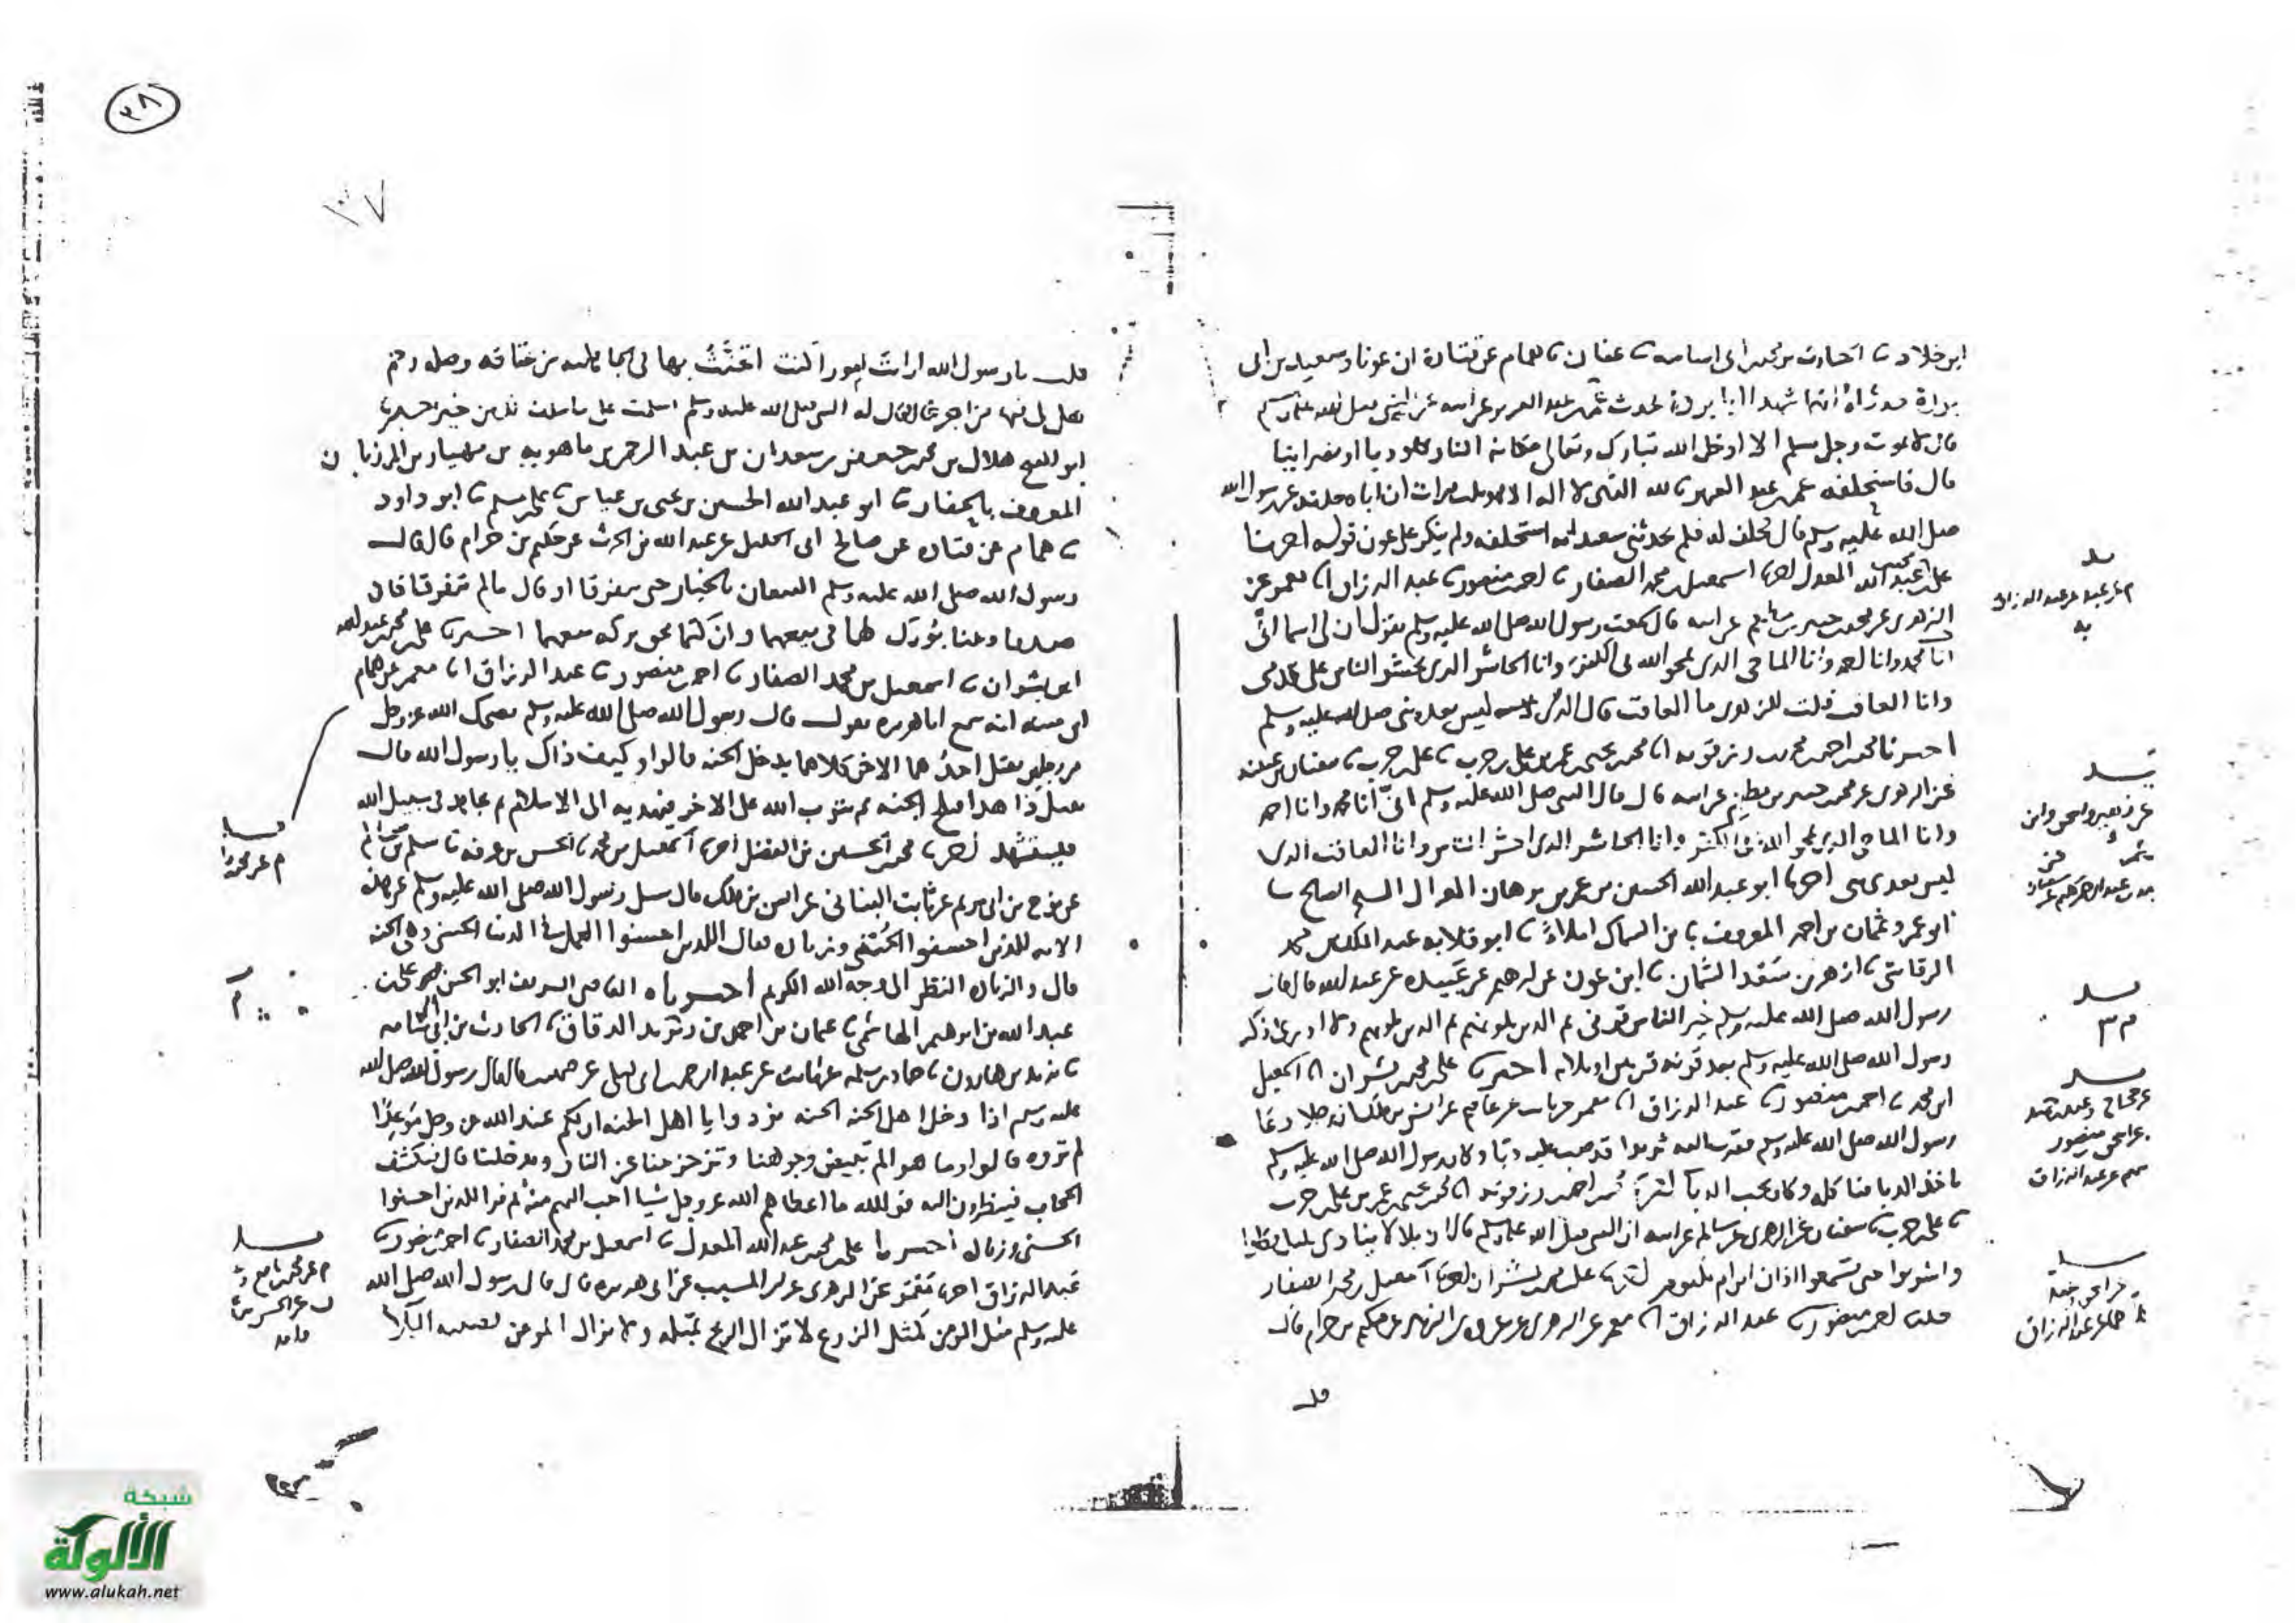 ابن خلاد ثنا الحارث بن محمد ابن ابى اسامه ثنا عفان ثنا همام عن قتادة ان عونا وسعيد بن ابى
بردة حدثاه انهما شهدا ابا بردة يحدث عمر بن عبد العزيز عن ابيه عن النبي صلى الله عليه وسلم
قال لا يموت رجل مسلم الا ادخل الله تبارك وتعالى مكانه النار يهوديا او نصرانيا
قال فاستحلفه عمر بن عبد العزيز بالله الذي لا اله الا هو ثلث مرات ان اباه حدثه عن رسول الله
صلى الله عليه وسلم قال فحلف له فلم يحدثني سعيد انه استحلفه ولم ينكر على عون قوله اخبرنا
على بن محمد بن عبد الله المعدل اخبرنا اسمعيل بن محمد الصفار ثنا احمد بن منصور ثنا عبد الرزاق انا معمر عن
الزهرى عن محمد بن جبير بن مطعم عن ابيه قال سمعت رسول الله صلى الله عليه وسلم يقول ان لى اسماء
انا محمد وانا احمد وانا الماحى الذى يمحو الله بى الكفر وانا الحاشر الذى يحشر الناس على قدمى
وانا العاقب قلت للزهرى ما العاقب قال الذى ليس بعده نبى صلى الله عليه وسلم
اخبرنا محمد بن احمد بن محمد بن رزقويه انا محمد بن يحيى بن عمر بن على بن حرب ثنا على بن حرب ثنا سفيان بن عيينه
عن الزهرى عن محمد بن جبير بن مطعم عن ابيه قال قال النبى صلى الله عليه وسلم انى انا محمد وانا احمد
وانا الماحى الذى يمحو الله بى الكفر وانا الحاشر الذى احشر الناس وانا العاقب الذى
ليس بعدى نبى اخبرنا ابو عبد الله الحسين بن عمر بن برهان الغزال الشيخ الصالح ثنا
ابو عمرو عثمان بن احمد المعروف بابن السماك املاء ثنا ابو قلابه عبد الملك بن محمد
الرقاشى ثنا ازهر بن سعد السمان ثنا ابن عون عن ابرهيم عن عبيده عن عبد الله قال قال
رسول الله صلى الله عليه وسلم خير الناس قرنى ثم الذين يلونهم ثم الذين يلونهم ولا ادرى اذكر
رسول الله صلى الله عليه وسلم بعد قرنه قرنين او ثلاثه اخبرنا على بن محمد بن بشران انا اسمعيل
ابن محمد ثنا احمد بن منصور ثنا عبد الرزاق انا معمر عن ثابت عن عاصم عن انس بن ملك ان رجلا دعا
رسول الله صلى الله عليه وسلم فقرب اليه ثريدا قد صب عليه دباء وكان رسول الله صلى الله عليه وسلم
ياخذ الدبا فياكله وكان يحب الدبا اخبرنا محمد بن احمد بن رزقويه انا محمد بن يحيى بن عمر بن على بن حرب
ثنا على بن حرب ثنا سفيان عن الزهرى عن سالم عن ابيه ان النبى صلى الله عليه وسلم قال ان بلالا ينادى بليل فكلوا
واشربوا حتى تسمعوا اذان ابن ام مكتوم اخبرنا على بن محمد بن بشران اخبرنا اسمعيل بن محمد الصفار
حدثنا احمد بن منصور ثنا عبد الرزاق انا معمر عن الزهرى عن عروه بن الزبير عن حكيم بن حزام قال
قلت
م عن عبد عن عبد الرزاق
به
م عن عبد الرزاق
٣٨
قلت يا رسول الله ارايت امورا كنت اتحنث بها فى الجاهليه من عتاقه وصله رحم
هل لى فيها من اجر فقال له النبى صلى الله عليه وسلم اسلمت على ما سلف لك من خير اخبرنا
ابو الفتح هلال بن محمد بن جعفر بن سعدان بن عبد الرحمن بن ماهويه بن مهيار بن المرزبان
المعروف بالحفار ثنا ابو عبد الله الحسين بن يحيى بن عياش ثنا على بن مسلم ثنا ابو داود
ثنا همام عن قتاده عن صالح ابى الخليل عن عبد الله بن الحرث عن حكيم بن حزام قال قال
رسول الله صلى الله عليه وسلم البيعان بالخيار حتى يتفرقا او قال ما لم يتفرقا فان
صدقا وبينا بورك لهما فى بيعهما وان كتما محق بركه بيعهما اخبرنا على بن محمد بن عبد الله
ابن بشران ثنا اسمعيل بن محمد الصفار ثنا احمد بن منصور ثنا عبد الرزاق انا معمر عن همام
ابن منبه انه سمع ابا هريره يقول قال رسول الله صلى الله عليه وسلم يضحك الله عز وجل
من رجلين يقتل احدهما الاخر كلاهما يدخل الجنه قالوا وكيف ذاك يا رسول الله قال
يقتل هذا فيلج الجنه ثم يتوب الله على الاخر فيهديه الى الاسلام ثم يجاهد فى سبيل الله
فيستشهد اخبرنا محمد بن الحسين بن الفضل اخبرنا اسمعيل بن محمد ثنا الحسن بن عرفه ثنا سلم بن سالم
عن نوح بن ابى مريم عن ثابت البنانى عن انس بن ملك قال سئل رسول الله صلى الله عليه وسلم عن هذه
الايه للذين احسنوا الحسنى وزياده فقال للذين احسنوا العمل فى الدنيا الحسنى وهى الجنه
قال والزياده النظر الى وجه الله الكريم اخبرنا القاضى الشريف ابو الحسن محمد بن على بن
عبد الله بن ابرهيم الهاشمى ثنا عثمان بن احمد بن يزيد الدقاق ثنا الحارث بن ابى اسامه
ثنا يزيد بن هارون ثنا حماد بن سلمه عن ثابت عن عبد الرحمن بن ابى ليلى عن صهيب قال قال رسول الله صلى الله
عليه وسلم اذا دخل اهل الجنه الجنه نودوا يا اهل الجنه ان لكم عند الله عز وجل موعدا
لم تروه قالوا وما هو الم تبيض وجوهنا وتزحزحنا عن النار وتدخلنا قال فيكشف
الحجاب فينظرون اليه فو الله ما اعطاهم الله عز وجل شيا احب اليهم منه ثم قرا للذين احسنوا
الحسنى وزياده اخبرنا على بن محمد بن عبد الله المعدل ثنا اسمعيل بن محمد الصفار ثنا احمد بن منصور ثنا
عبد الرزاق اخبرنا معمر عن الزهرى عن ابن المسيب عن ابى هريره قال قال رسول الله صلى الله
عليه وسلم مثل المومن كمثل الزرع لا تزال الريح تميله ولا يزال المومن يصيبه البلاء
شبكة
الألوكة
www.alukah.net